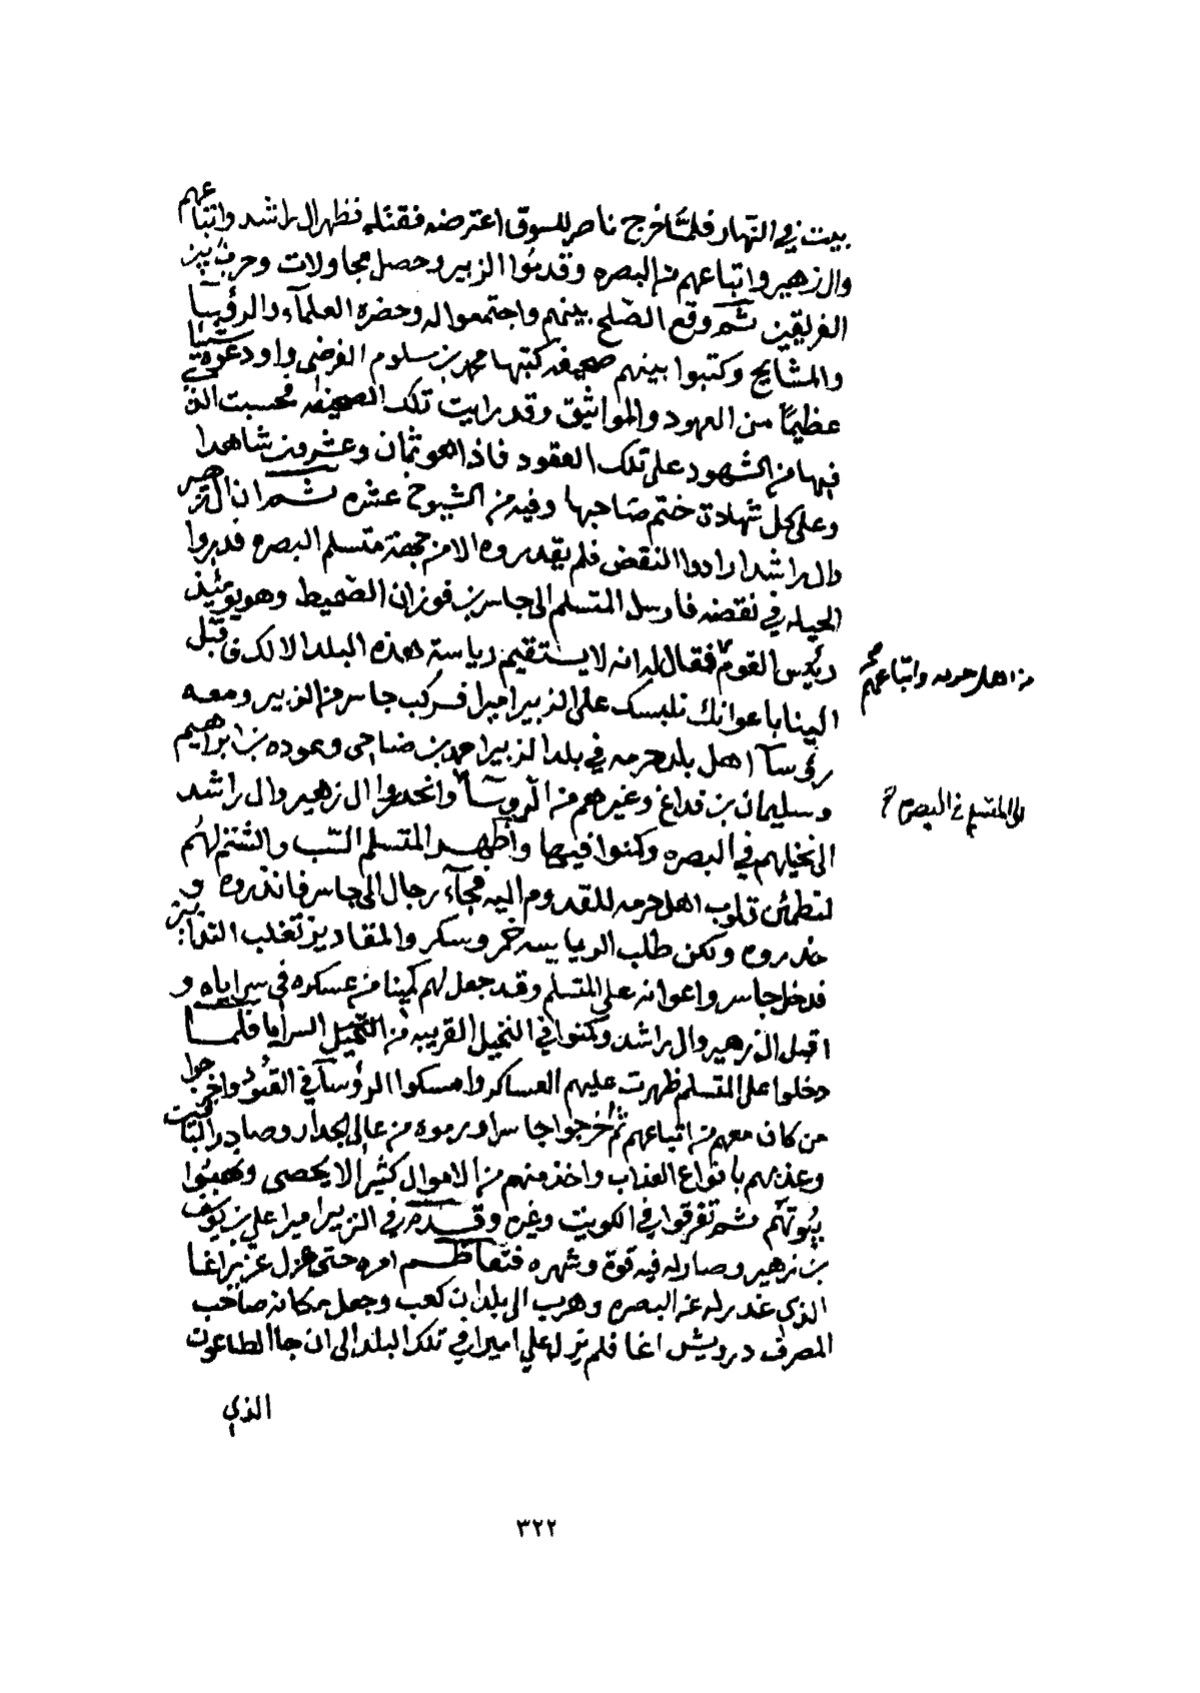 بيت في النهار فلمّا خرج ناصر للسوق اعترضه فقتله فظهر ال راشد واتباعهم
وال زهير واتباعهم من البصره وقدموا الزبير وحصل مجاولات وحرب بين
الفريقين ثم وقع الصلح بينهم واجتمعوا له وحضره العلمآء والرؤسا
والمشايخ وكتبوا بينهم صحيفه كتبها محمد بن سلوم الفرضي واودعوه شيئا
عظيمًا من العهود والمواثيق وقد رايت تلك الصحيفه فحسبت الذي
فيها من الشهود على تلك العقود فاذا هو ثمان وعشرون شاهدا
وعلى كل شهادة ختم صاحبها وفيه من الشيوخ عشره ثم ان ال زهير
وال راشد ارادوا النقض فلم يقدروه الا من جهة متسلم البصره فدبروا
الحيله في نقضه فارسل المتسلم الى جاسر بن فوزان الضميط وهو يومئذ
رئيس القوم فقال له انه لا يستقيم رياسة هذه البلد الا لك فاقبل
من اهل حرمه واتباعهم صح
الينا باعوانك نلبسك على الزبير اميرا فركب جاسر من الزبير ومعه
رؤسآ اهل بلد حرمه في بلد الزبير احمد بن ضاحي وعوده بن ابراهيم
وسليمان بن فداغ وغيرهم من الروسآ وانحدروا ال زهير وال راشد
الى المتسلم في البصره صح
الى نخيلهم في البصره وكمنوا فيها واظهر المتسلم السّب والشتم لهم
لتطمئن قلوب اهل حرمه للقدوم اليه فجآء رجال الى جاسر فانذروه و
حذروه ولكن طلب الرياسه خمر وسكر والمقادير تغلب التدابير
فدخل جاسر واعوانه على المتسلم وقد جعل لهم كمينا من عسكره في سراياه و
اقبل ال زهير وال راشد وكمنوا في النخيل القريبه من السرايا فلما
دخلوا على المتسلم ظهرت عليهم العساكر وامسكوا الرؤسآ في القيود واخرجوا
من كان معهم من اتباعهم ثم اخرجوا جاسرا ورموه من عالي الجدار وصادر
وعذبهم بانواع العذاب واخذ منهم من الاموال كثيرا لا يحصى ونهبوا
بيُوتهم ثم تفرقوا في الكويت وغيره وقدم في الزبير اميرا علي بن يوسف
بن زهير وصار له فيه قوة وشهره فتعاظم امره حتى عزل عزير اغا
الذي غدر له عن البصره وهرب الى بلدان كعب وجعل مكانه صاحب
المصرف درويش اغا فلم يزل علي اميرا في تلك البلد الى ان جا الطاعون
الذي
٣٢٢